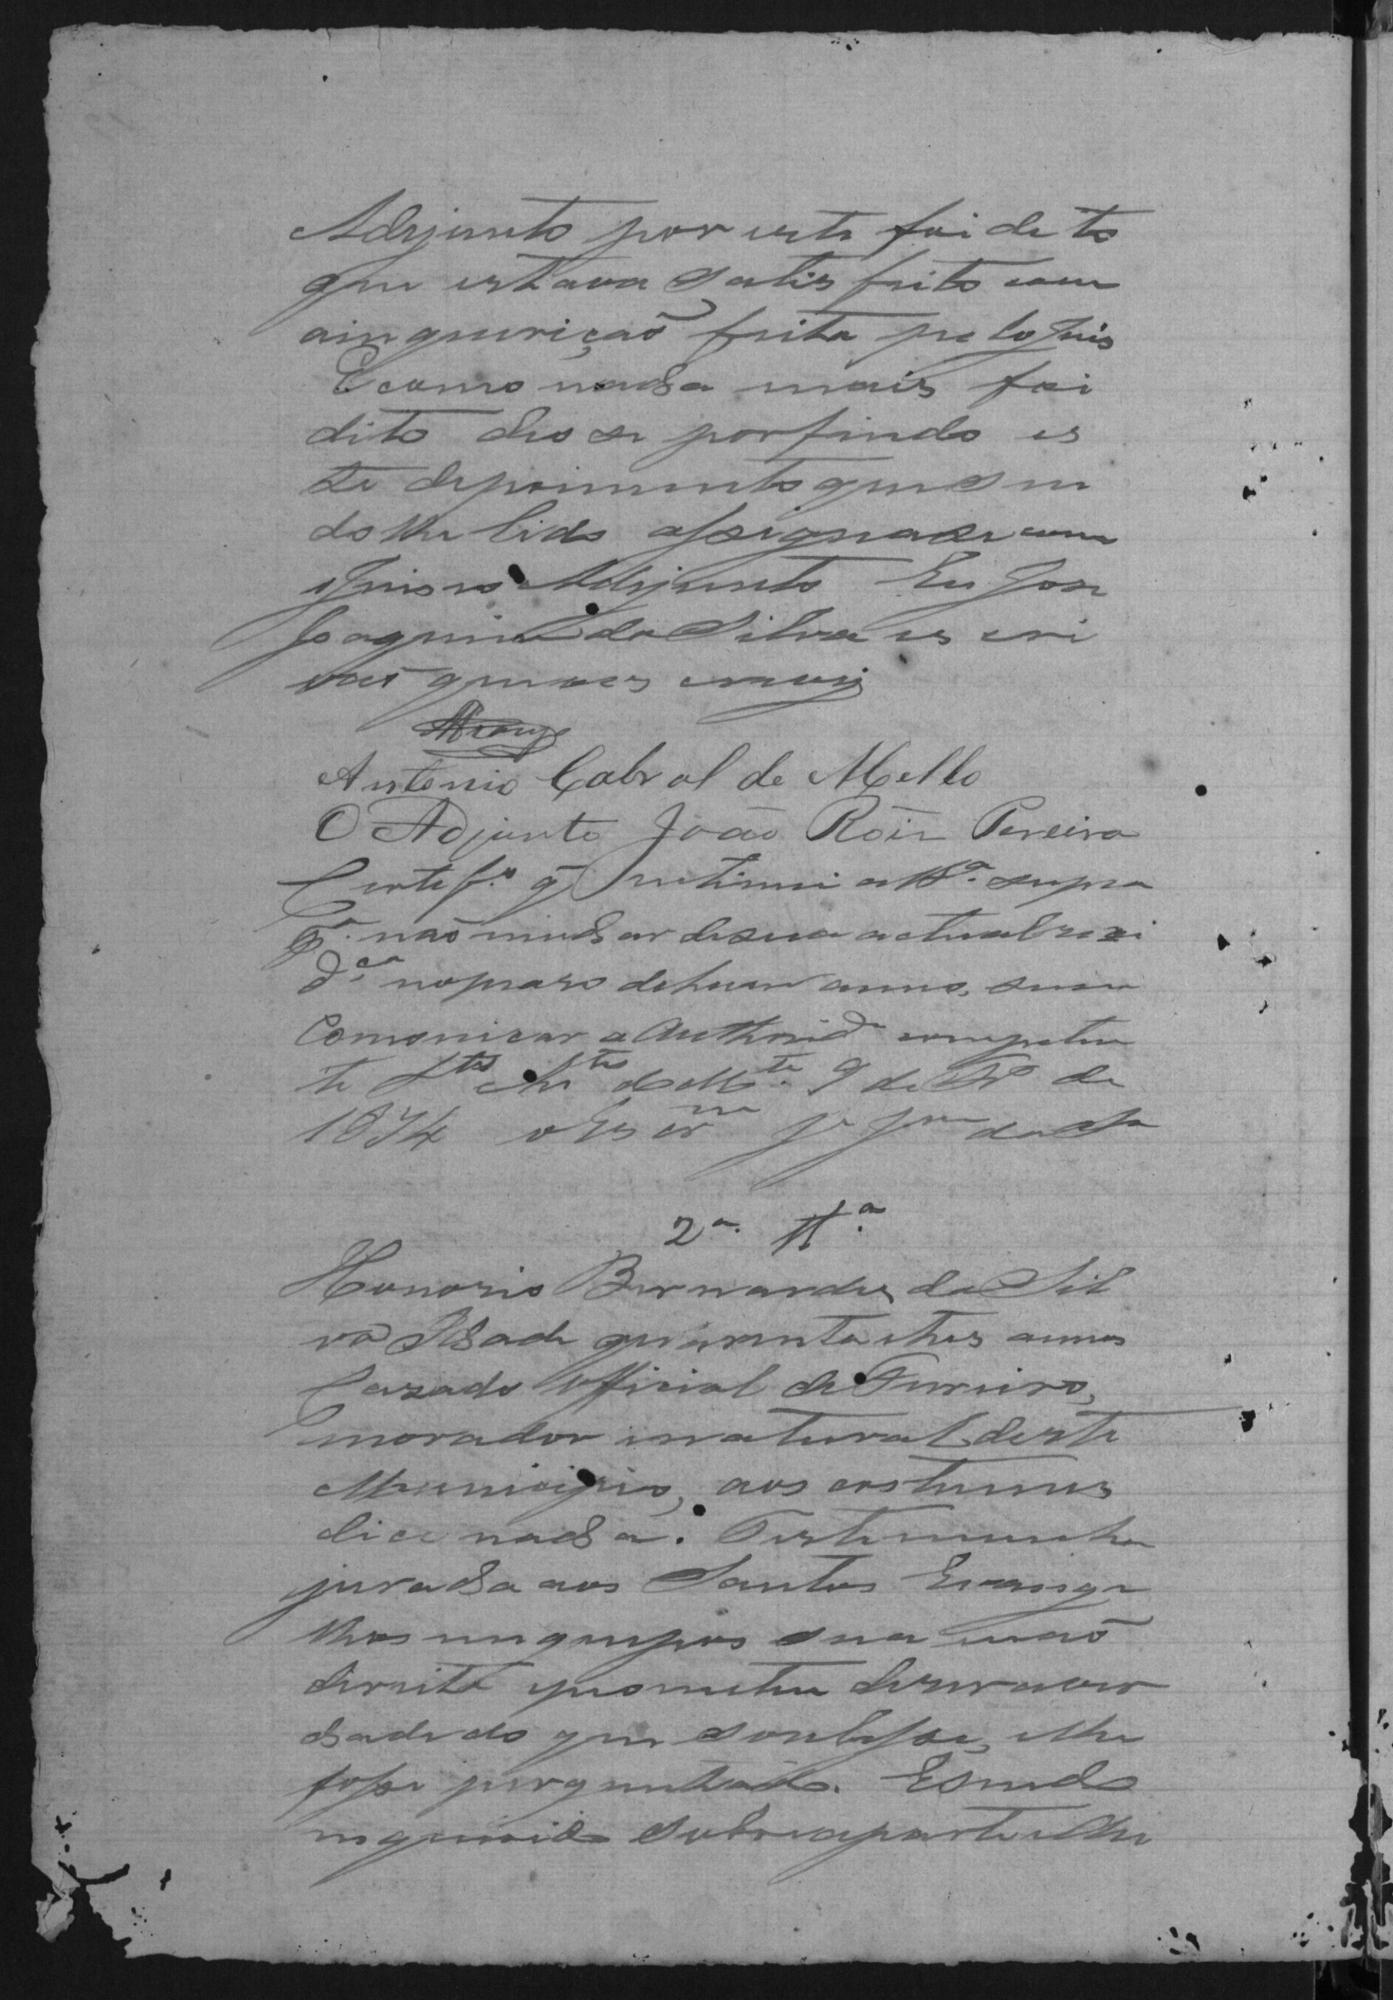 Adejunto por este foi deto
que estava satis feito com
ainqueriçaõ feita pelo Juis
E como nada mais foi
dito deo se por findo es
te depoimento que sen
do lhe lido assigna se com
o Juis eo Adejunto Eu Jose
Joaquim da Silva es cri
vaõ que o es crevy
Antonio Cabral de Mello
O Adjunto João Roiz Pereira
Certef.º q̃ intimei a tt.ª supra
p.ª naõ mudar de sua actual rezi
d.cia no praso de hum anno, sem
Comonicar a Authorid.e competen
te
9 de de
1874 o Escr.am Je Jm da Sa
2ª. tt.ª
Honorio Bernardes da Sil
va Idade quarenta etres annos
Cazado Official de Fereiro,
morador enatural deste
Municipio, aos costumes
dice nada. Testemunha
jurada aos Santos Evange
lhos em que pos sua maõ
direita eprometeu dizer a ver
dade do que soubesse, elhe
fosse perguntado. Esendo
inquerido sobre aparte elhe